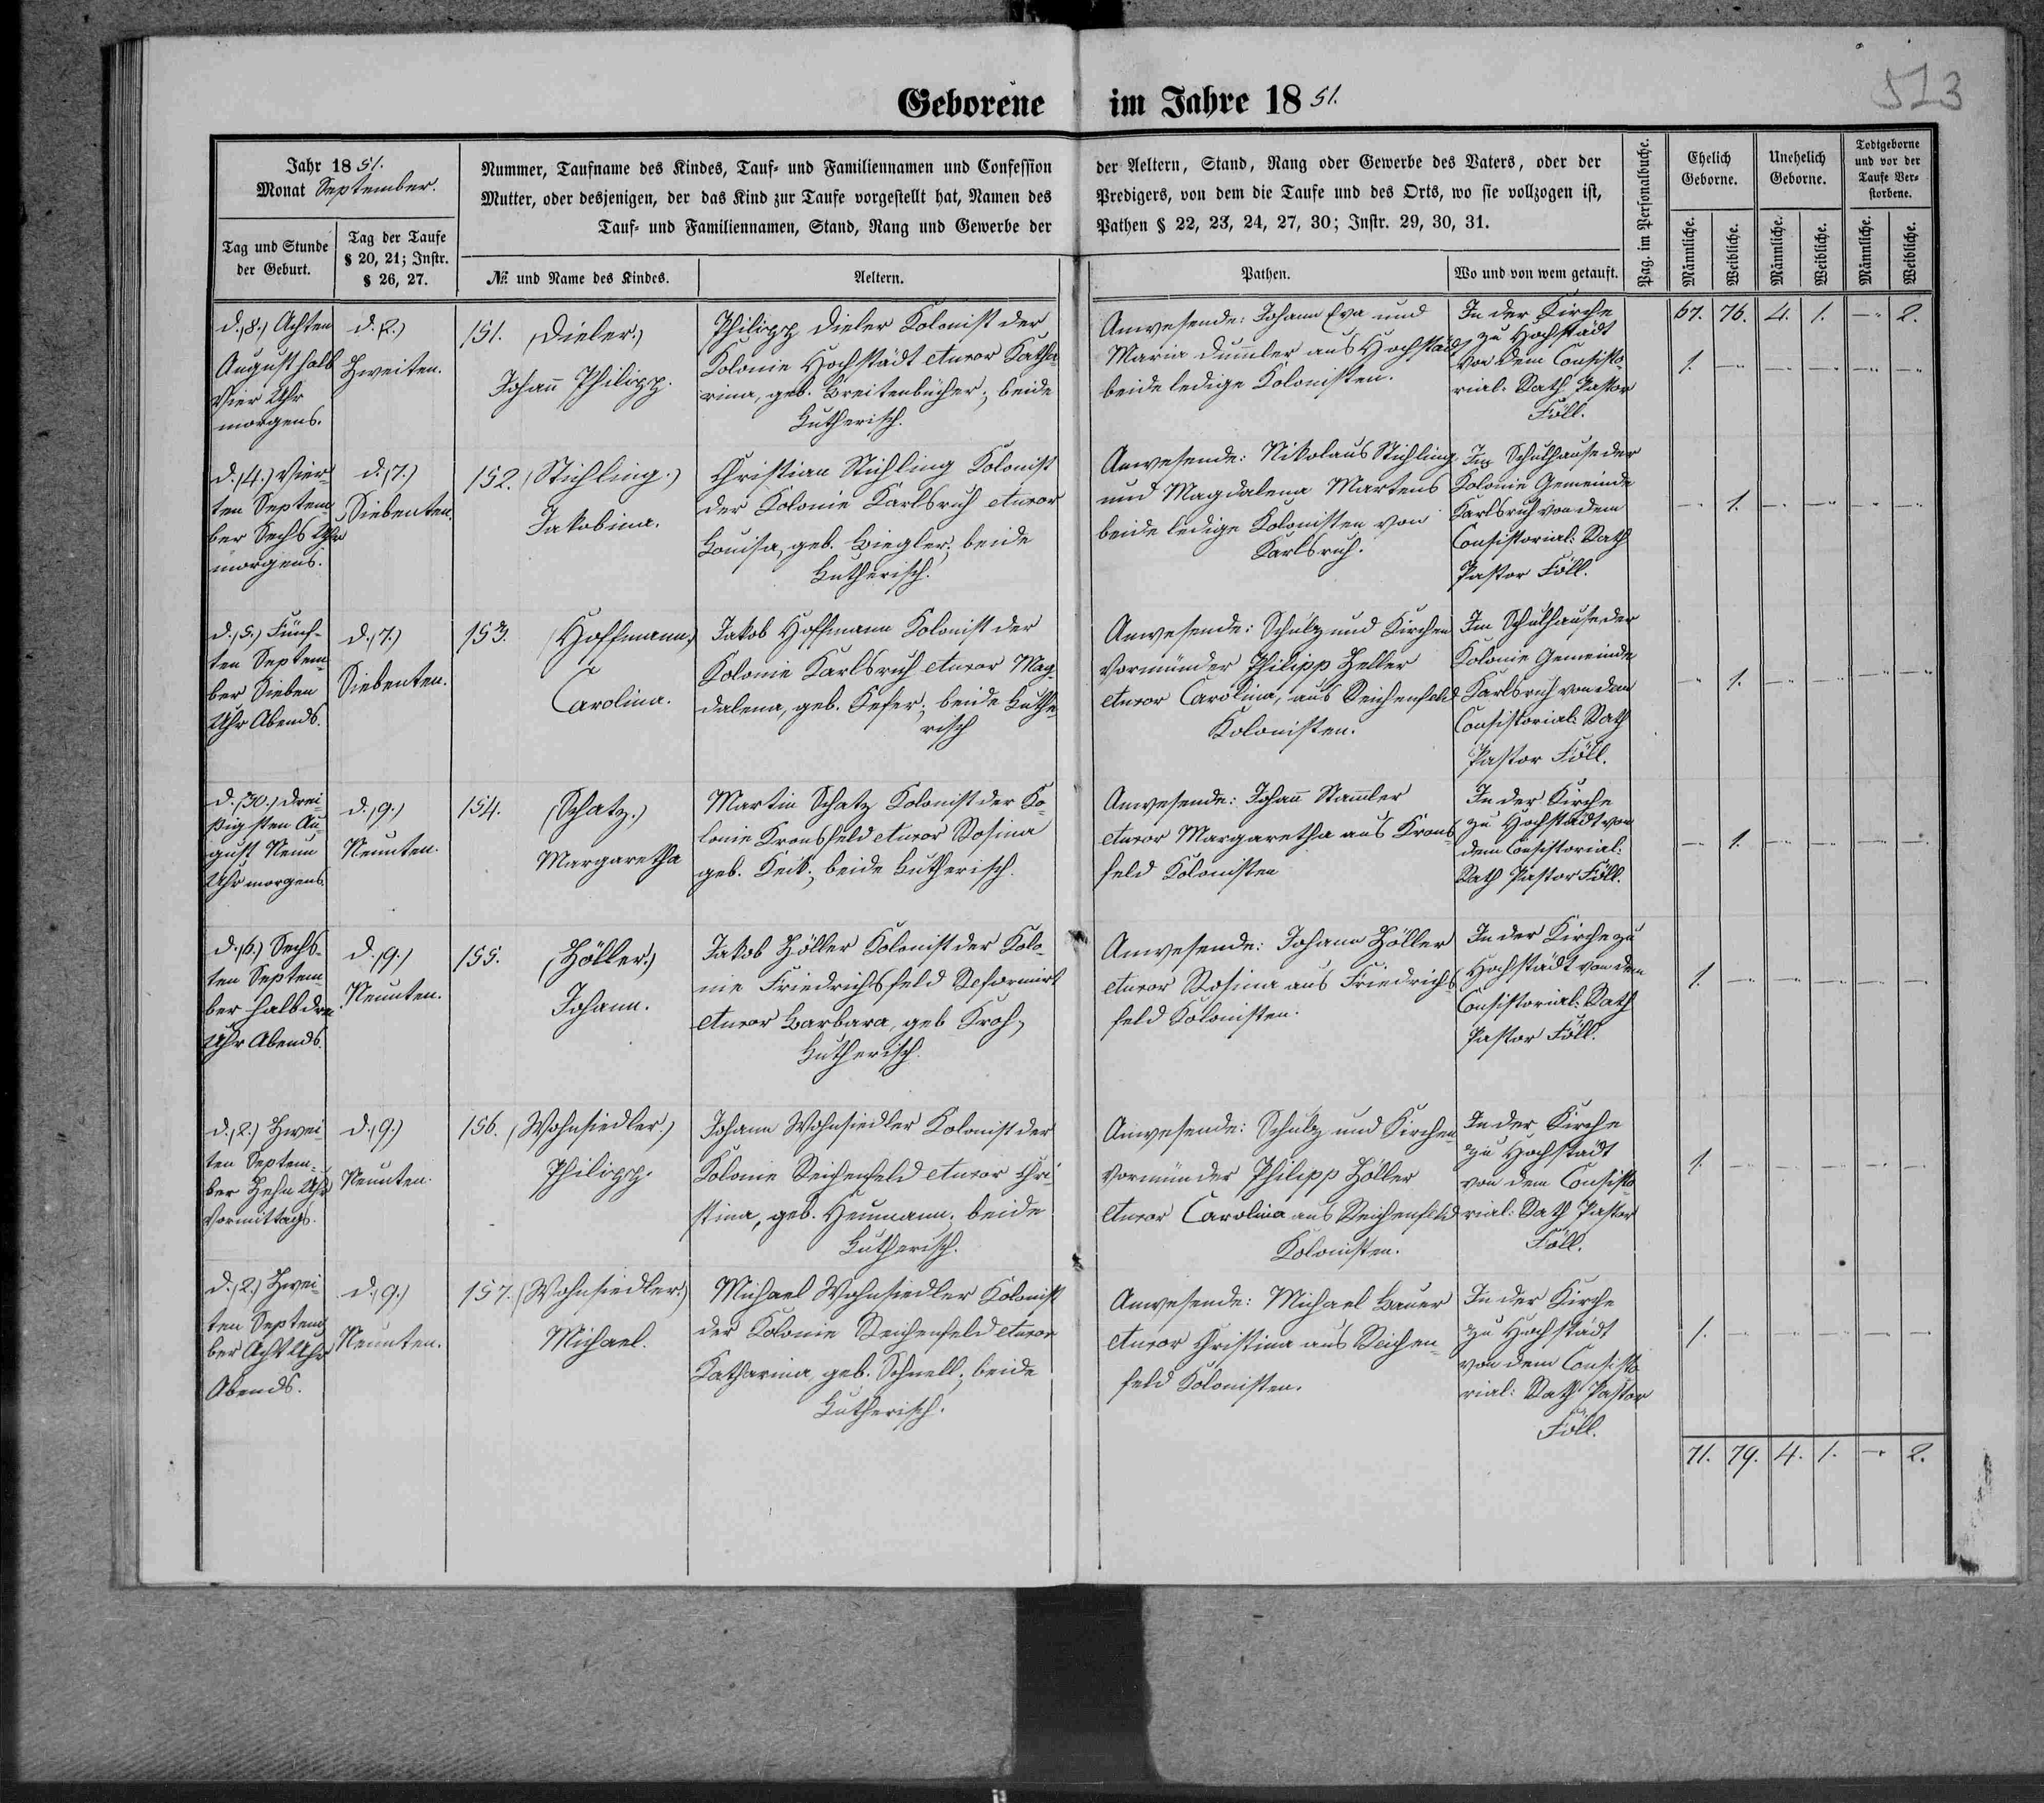 523
Geborene im Jahre 1851.
Jahr 1851.
Monat September.
Tag und Stunde
der Geburt.
Tag der Taufe
§ 20, 21; Instr.
§ 26, 27.
Nummer, Taufname des Kindes, Tauf- und Familiennamen und Confession
Mutter, oder desjenigen, der das Kind zur Taufe vorgestellt hat, Namen des
Tauf- und Familiennamen, Stand, Rang und Gewerbe der
№ und Name des Kindes.
Aeltern.
der Aeltern, Stand, Rang oder Gewerbe des Vaters, oder der
Predigers, von dem die Taufe und des Orts, wo sie vollzogen ist,
Pathen § 22, 23, 24, 27, 30; Instr. 29, 30, 31.
Pathen.
Wo und von wem getauft.
Pag. im Personalbuche.
Ehelich
Geborne.
Unehelich
Geborne.
Todtgeborne
und vor der
Taufe Ver-
storbene.
Männliche.
Weibliche.
Männliche.
Weibliche.
Männliche.
Weibliche.
67. 76. 4. 1. — 2.
d. (8.) Achten
August halb
Vier Uhr
morgens.
d. (2.)
Zweiten.
151. (Dieler.)
Johan̄ Philipp.
Philipp Dieler Kolonist der
Kolonie Hochstädt et uxor Katha-
rina, geb. Breitenbücher; beide
Lutherisch.
Anwesende: Johann Eva und
Maria Dum̄ler aus Hochstädt
beide ledige Kolonisten.
In der Kirche
zu Hochstädt
von dem Consisto-
rial: Rath Pastor
Föll.
1. — — — — —
d. (4.) Vier-
ten Septem-
ber Sechs Uhr
morgens.
d. (7.)
Siebenten.
152. (Stichling.)
Jakobina.
Christian Stichling Kolonist
der Kolonie Karlsruh et uxor
Louisa, geb. Ziegler; beide
Lutherisch.
Anwesende: Nikolaus Stichling
und Magdalena Martens
beide ledige Kolonisten von
Karlsruh.
Im Schulhause der
Kolonie Gemeinde
Karlsruh von dem
Consistorial: Rath
Pastor Föll.
— 1. — — — —
d. (5.) Fünf-
ten Septem-
ber Sieben
Uhr Abends.
d. (7.)
Siebenten.
153. (Hoffmann.)
Carolina.
Jakob Hoffmann Kolonist der
Kolonie Karlsruh et uxor Mag-
dalena, geb. Kefer; beide Luthe-
risch
Anwesende: Schulz und Kirchen
Vormünder Philipp Heller
et uxor Carolina, aus Reichenfeld
Kolonisten.
Im Schulhause der
Kolonie Gemeinde
Karlsruh von dem
Consistorial: Rath
Pastor Föll.
— 1. — — — —
d. (30.) Drei-
ßigsten Au-
gust Neun
Uhr morgens.
d. (9.)
Neunten.
154. (Schatz.)
Margaretha
Martin Schatz Kolonist der Ko-
lonie Kronsfeld et uxor Rosina
geb. Keck; beide Lutherisch.
Anwesende: Johan̄ Stam̄ler
et uxor Margaretha aus Krons-
feld Kolonisten
In der Kirche
zu Hochstädt von
dem Consistorial:
Rath Pastor Föll.
— 1. — — — —
d. (6.) Sechs-
ten Septem-
ber halb drei
Uhr Abends.
d. (9.)
Neunten.
155. (Höller.)
Johann.
Jakob Höller Kolonist der Kolo-
nie Friedrichsfeld Reformirt
et uxor Barbara, geb Kroh,
Lutherisch.
Anwesende: Johann Höller
et uxor Rosina aus Friedrichs
feld Kolonisten.
In der Kirche zu
Hochstädt von dem
Consistorial: Rath
Pastor Föll.
1. — — — — —
d. (2.) Zwei-
ten Septem-
ber Zehn Uhr
Vormittags.
d. (9.)
Neunten.
156. (Wohnsiedler.)
Philipp.
Johann Wohnsiedler Kolonist der
Kolonie Reichenfeld et uxor Chri-
stina, geb. Heumann; beide
Lutherisch.
Anwesende: Schulz und Kirchen
Vormünder Philipp Höller
et uxor Carolina aus Reichenfeld
Kolonisten.
In der Kirche
zu Hochstädt
von dem Consisto-
rial: Rath Pastor
Föll.
1. — — — — —
d. (2.) Zwei-
ten Septem-
ber Acht Uhr
Abends.
d. (9.)
Neunten.
157. (Wohnsiedler.)
Michael.
Michael Wohnsiedler Kolonist
der Kolonie Reichenfeld et uxor
Katharina, geb. Schnell; beide
Lutherisch.
Anwesende: Michael Bauer
et uxor Christina aus Reichen-
feld Kolonisten.
In der Kirche
zu Hochstädt
von dem Consisto-
rial: Rath Pastor
Föll.
1. — — — — —
71. 79. 4. 1. — 2.